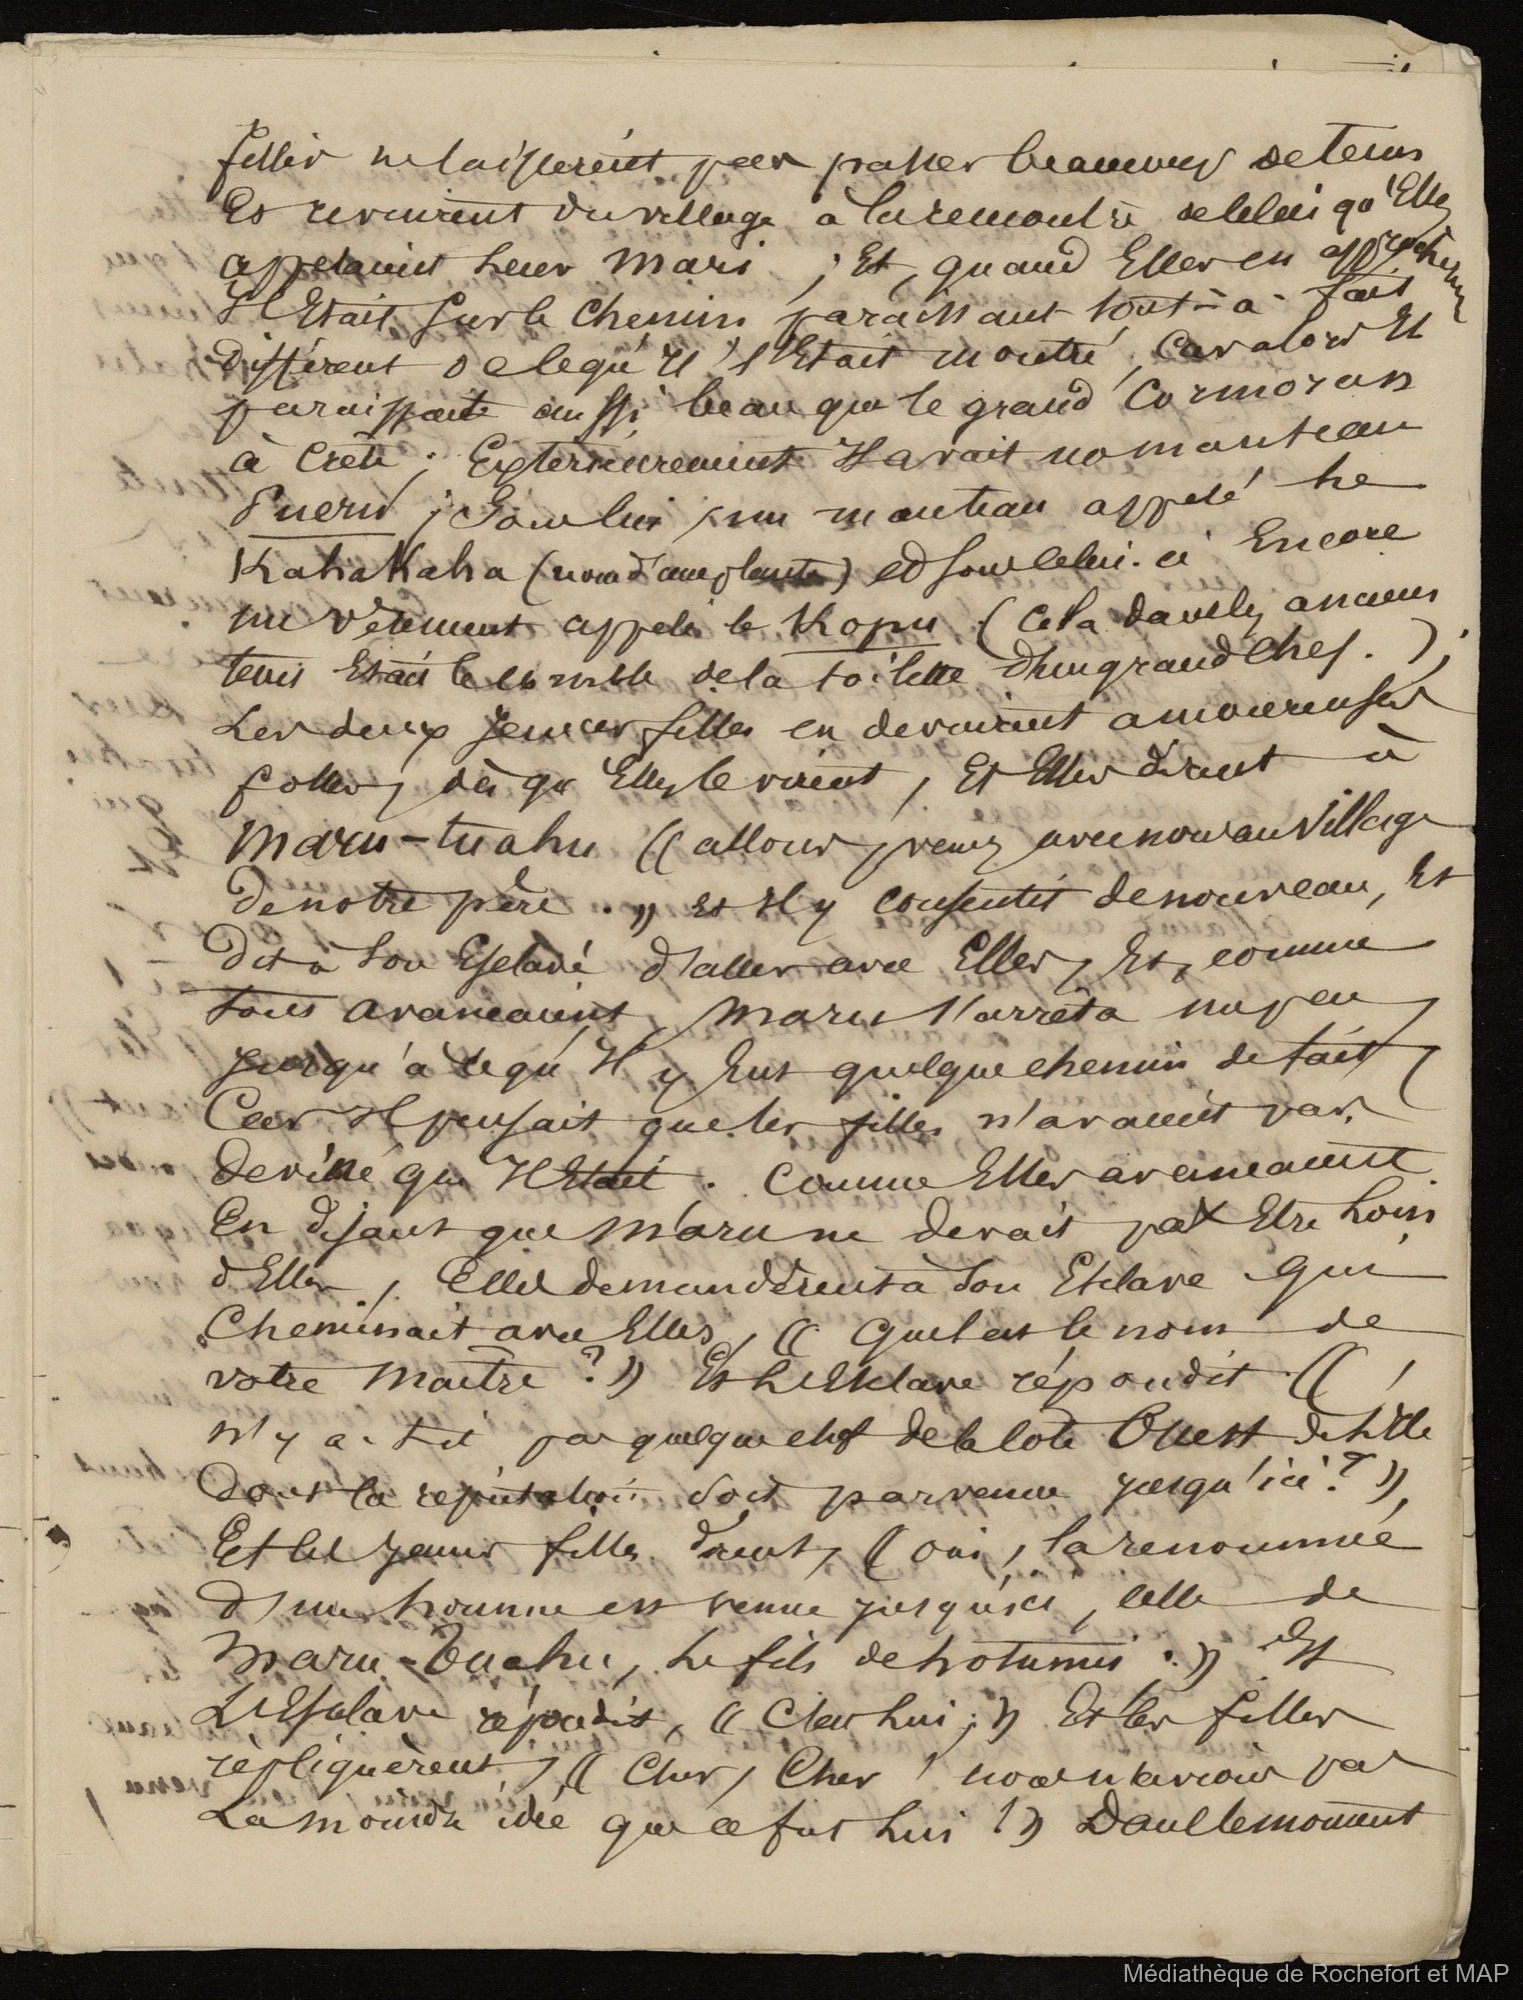 filles ne laissèrent pas passer beaucoup de tems
Et revinrent du village à la rencontre de celui qu'Elles
appelaient leur Mari ; Et, quand Elles en approchèrent
Il Etait sur le chemin paraissant tout-à-fait
différent de ce qu'Il s'Etait montré, Car alors Il
paraissait aussi beau que le grand Cormoran
à Crête ; Extérieurement Il avait un manteau
Pueru ; Sous lui, un manteau appelé he
Kahakaha (nom d'une plante) et sous celui-ci Encore
un vêtement appelé le Kopu (Cela dans les anciens
tems Etait l'ensemble de la toilette d'un grand Chef.) ;
Les deux Jeunes filles en devinrent amoureuses
folles, dès qu'Elles le virent, Et Elles dirent à
Maru-tuahu (( allons, venez avec nous au Village
De notre père. )) Et Il y consentit de nouveau, Et
Dit à Son Esclave d'aller avec Elles, Et, comme
tous avançaient, Maru s'arrêta un peu,
Jusqu'à ce qu'Il y Eut quelque chemin de fait,
Car Il pensait que les filles n'avaient pas
Deviné qui Il Etait. Comme Elles avançaient
En disant que Maru ne devait pas Etre loin
d'Elles, Elles demandèrent à Son Esclave qui
Cheminait avec Elles, (( Quel est le nom de
votre Maître ? )) Et L'Esclave répondit ((
n'y a-t-il pas quelque chef de la Côte Ouest de l'Ile
Dont la réputation soit parvenue jusqu'ici ? )),
Et les jeunes filles dirent, (( oui, la renommée
D'un homme est venue jusqu'ici, celle de
Maru-Tuahu, Le fils de hotunui. )) Et
L'Esclave répondit, (( C'est Lui ; )) Et les filles
répliquèrent, (( Cher, Cher ! nous n'avions pas
La moindre idée que ce fut Lui ! )) Dans le moment
Médiathèque de Rochefort et MAP